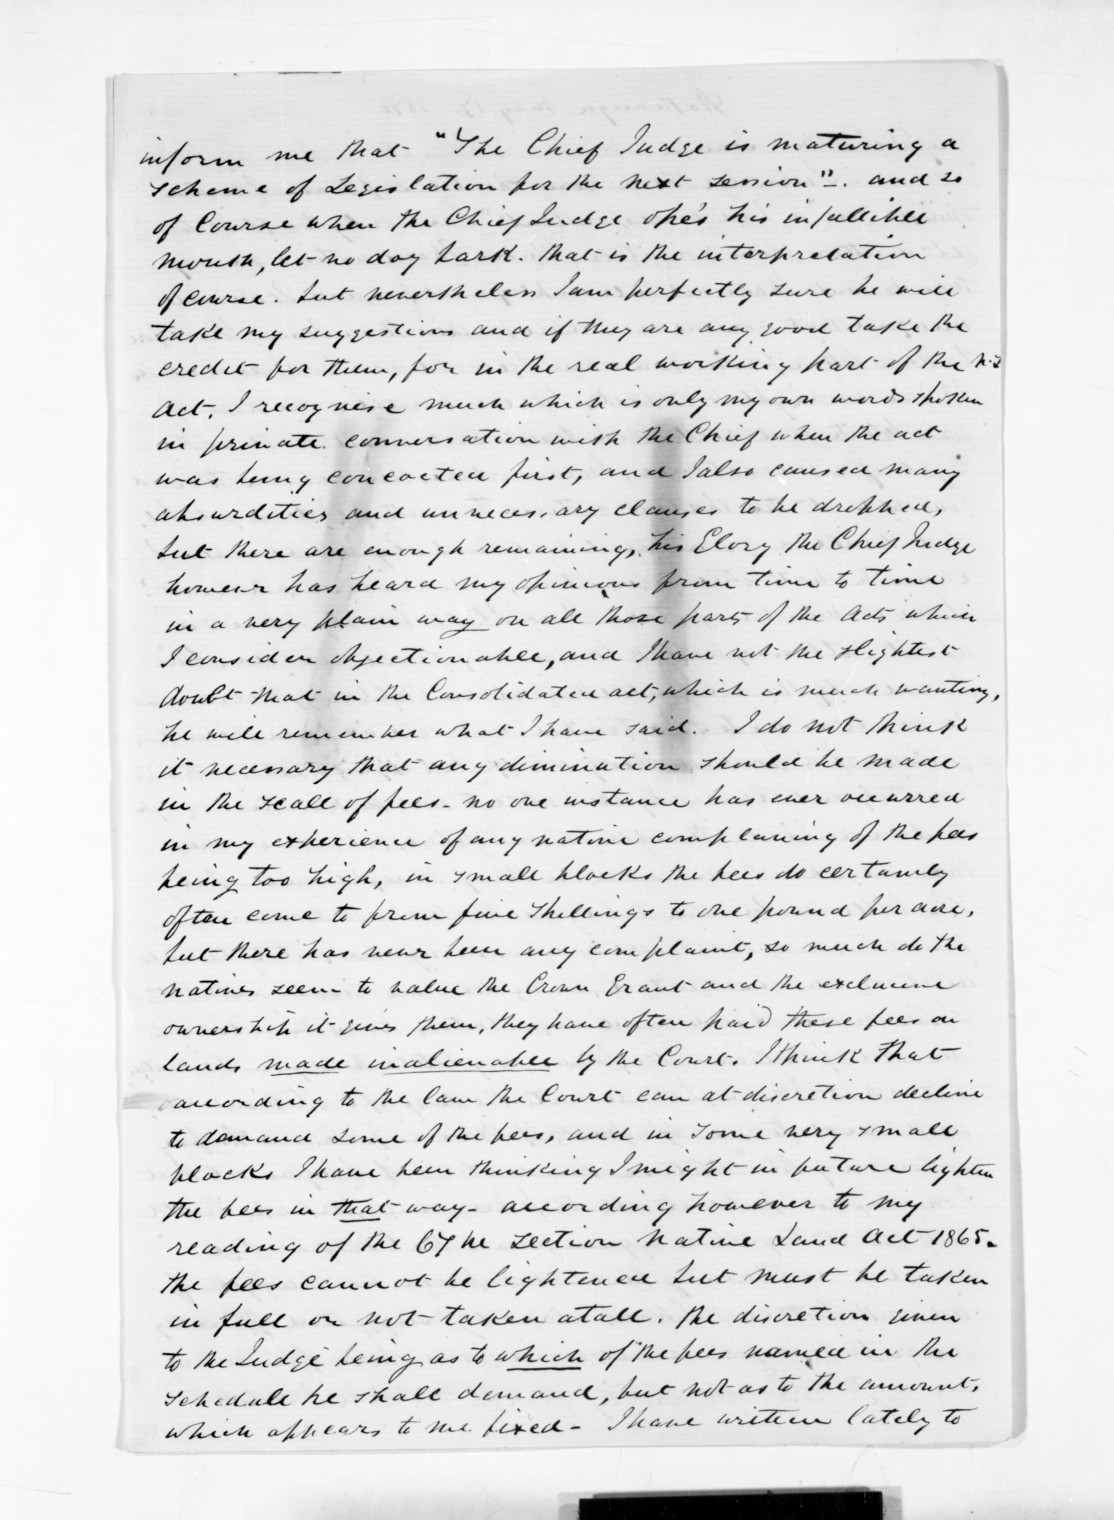 inform me that "The Chief Judge is maturing a
scheme of Legislation for the next session". and so
of Course when the Chief Judge ope's his infallible
mouth, let no dog bark. that is the interpretation
of course. but nevertheless I am perfectly sure he will
take my suggestions and if they are any good take the
credit for them, for in the real working part of the N.L
Act. I recognise much which is only my own words spoken
in private conversation with the Chief when the act
was being concocted first, and I also caused many
absurdities and unnecessary clauses to be dropped,
but there are enough remaining, his Glory the Chief Judge
however has heard my opinions from time to time
in a very plain way on all those parts of the Acts which
I consider objectionable, and I have not the slightest
doubt that in the Consolidated act, which is much wanting,
he will remember what I have said. I do not think
it necessary that any diminution should be made
in the scale of fees - no one instance has ever occurred
in my experience of any native complaining of the fees
being too high, in small blocks the fees do certainly
often come to from five shillings to one pound per acre,
but there has never been any complaint, so much do the
natives seem to value the Crown Grant and the exclusive
ownership it gives them, they have often paid these fees on
lands made inalienable by the Court. I think that
according to the law the Court can at discretion decline
to demand some of the fees, and in some very small
blocks I have been thinking I might in future lighten
the fees in that way - according however to my
reading of the 67 he section Native Land Act 1865.
the fees cannot be lightened but must be taken
in full or not taken at all. the discretion given
to the Judge being as to which of the fees named in the
schedule he shall demand, but not as to the amount,
which appears to me fixed - I have written lately to